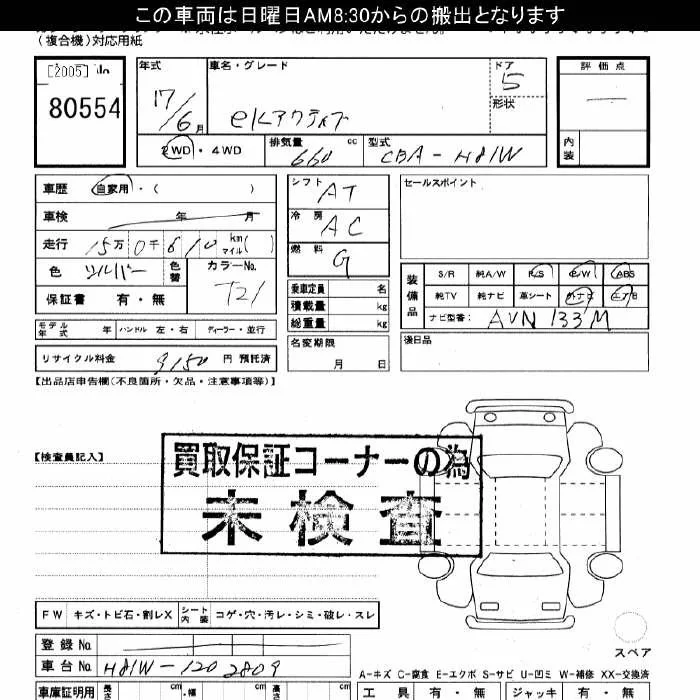 この車両は日曜日AM8:30からの搬出となります
(複合機)対応用紙
[2005] No
80554
年式
17/6月
車名・グレード
eKアクティブ
ドア
5
形状
評価点
内装
2WD・4WD
排気量
660 cc
型式
CBA-H81W
車歴 自家用・( )
車検 年 月
走行 15万0千610 km マイル( )
色 シルバー 色替 カラーNo. T21
保証書 有・無
シフト AT
冷房 AC
燃料 G
乗車定員 名
積載量 kg
総重量 kg
名変期限 月 日
セールスポイント
装備品
S/R 純A/W P/S P/W ABS
純TV 純ナビ 革シート 外ナビ ETB
ナビ型番: AVN 133M
後日品
モデル年式 年 ハンドル 左・右 ディーラー・並行
リサイクル料金 9150 円 預託済
【出品店申告欄(不良箇所・欠品・注意事項等)】
【検査員記入】
買取保証コーナーの為
未検査
FW キズ・トビ石・割レX シート内装 コゲ・穴・汚レ・シミ・破レ・スレ
登録No.
車台No. H81W-1202809
スペア
A-キズ C-腐食 E-エクボ S-サビ U-凹ミ W-補修 XX-交換済
車庫証明用 長さ cm ・幅 cm 高さ cm
工具 有・無 ジャッキ 有・無